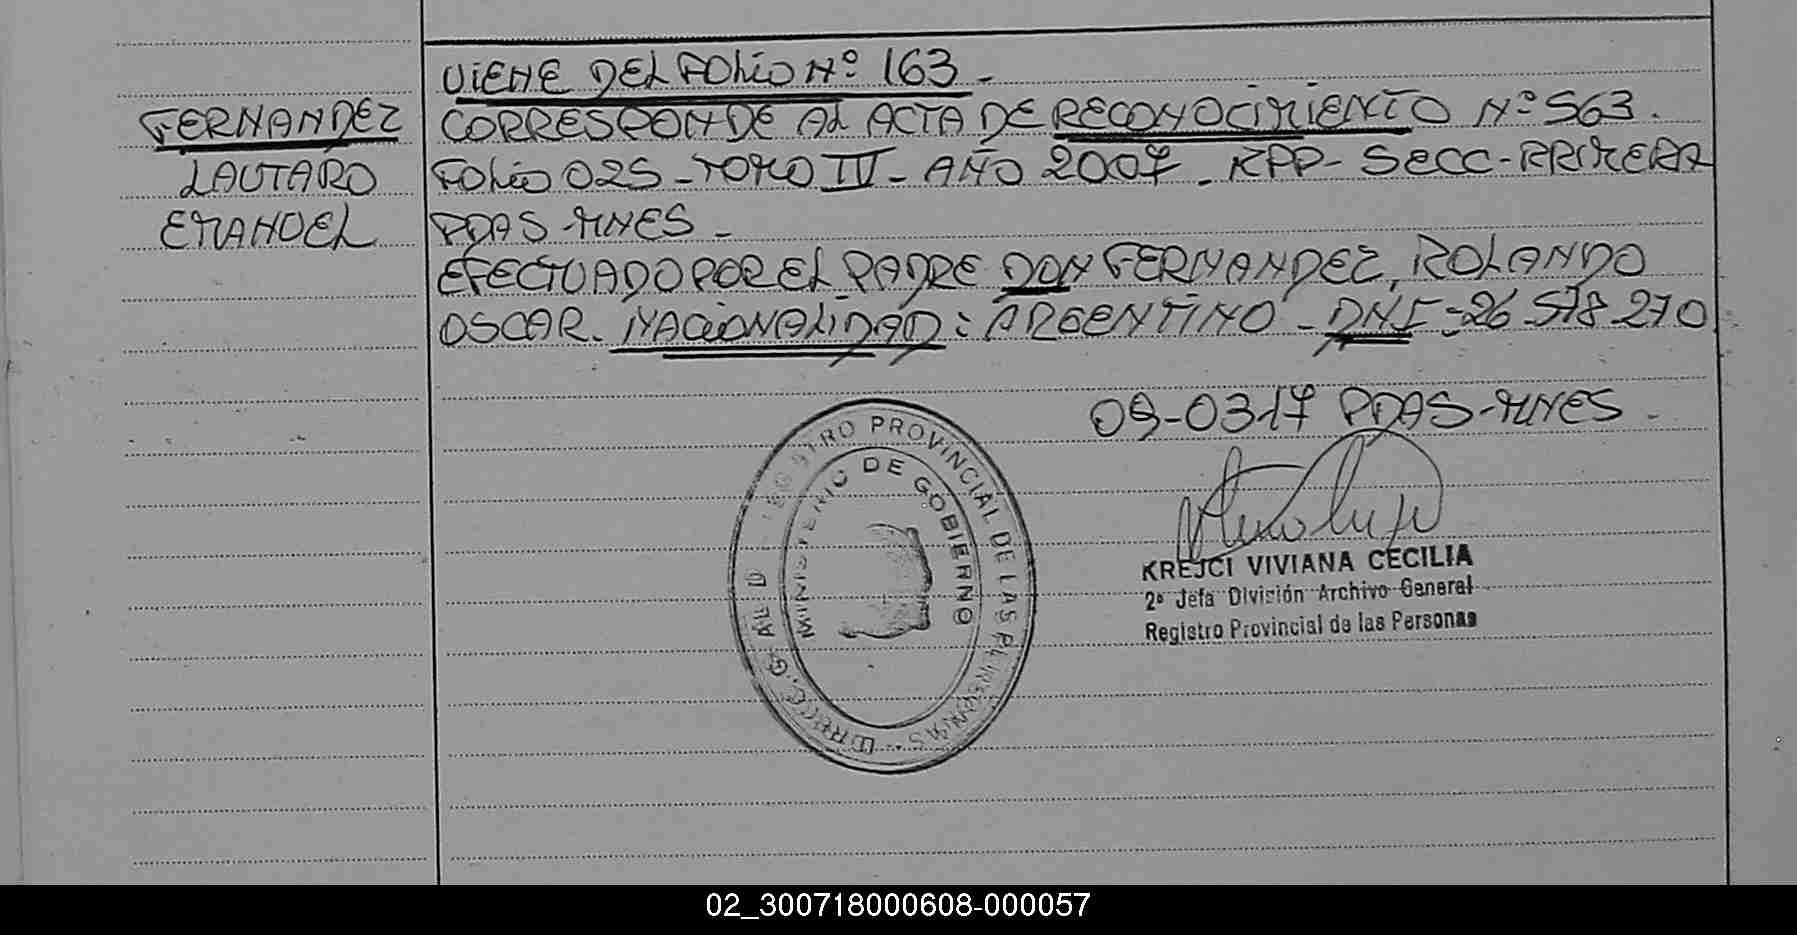 VIENE DEL FOLIO Nº 163 -
FERNANDEZ
LAUTARO
EMANUEL
CORRESPONDE AL ACTA DE RECONOCIMIENTO Nº 563.
FOLIO 025 - TOMO IV - AÑO 2007 - RPP - SECC - PRIMERA
PDAS - MNES -
EFECTUADO POR EL PADRE DON FERNANDEZ, ROLANDO
OSCAR. NACIONALIDAD: ARGENTINO - DNI - 26.578.270
09-03-17 PDAS - MNES -
REGISTRO PROVINCIAL DE LAS PERSONAS
MINISTERIO DE GOBIERNO
DIRECC. GRAL D
KREJCI VIVIANA CECILIA
2ª Jefa División Archivo General
Registro Provincial de las Personas
02_300718000608-000057